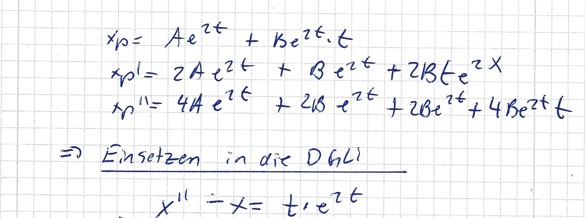 xp= Ae^2t + Be^2t·t
xp'= 2Ae^2t + Be^2t + 2Bte^2x
xp''= 4Ae^2t + 2Be^2t + 2Be^2t + 4Be^2t t
=> Einsetzen in die DGL:
x'' - x = t·e^2t